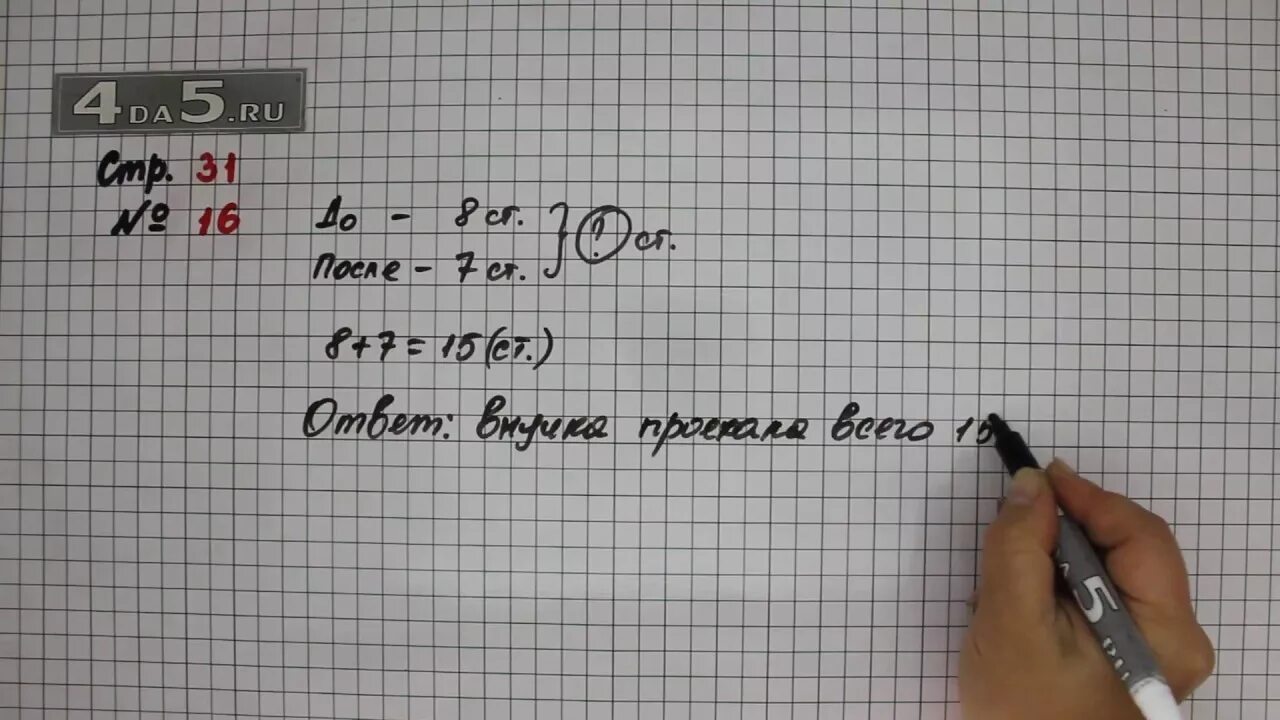 4DA5.RU
Стр. 31
№ 16
До - 8 ст.
После - 7 ст.
? ст.
8+7=15(ст.)
Ответ: внучка проехала всего 15
5